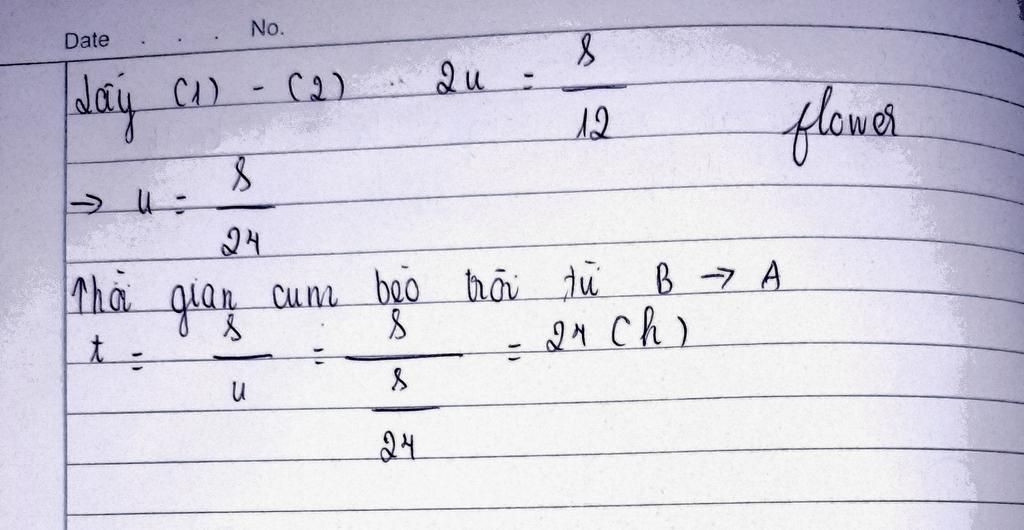 Date . . . No.
Lấy (1) - (2) .. 2u = s/12
flower
→ u = s/24
Thời gian cụm bèo trôi từ B → A
t = s/u = s/(s/24) = 24 (h)